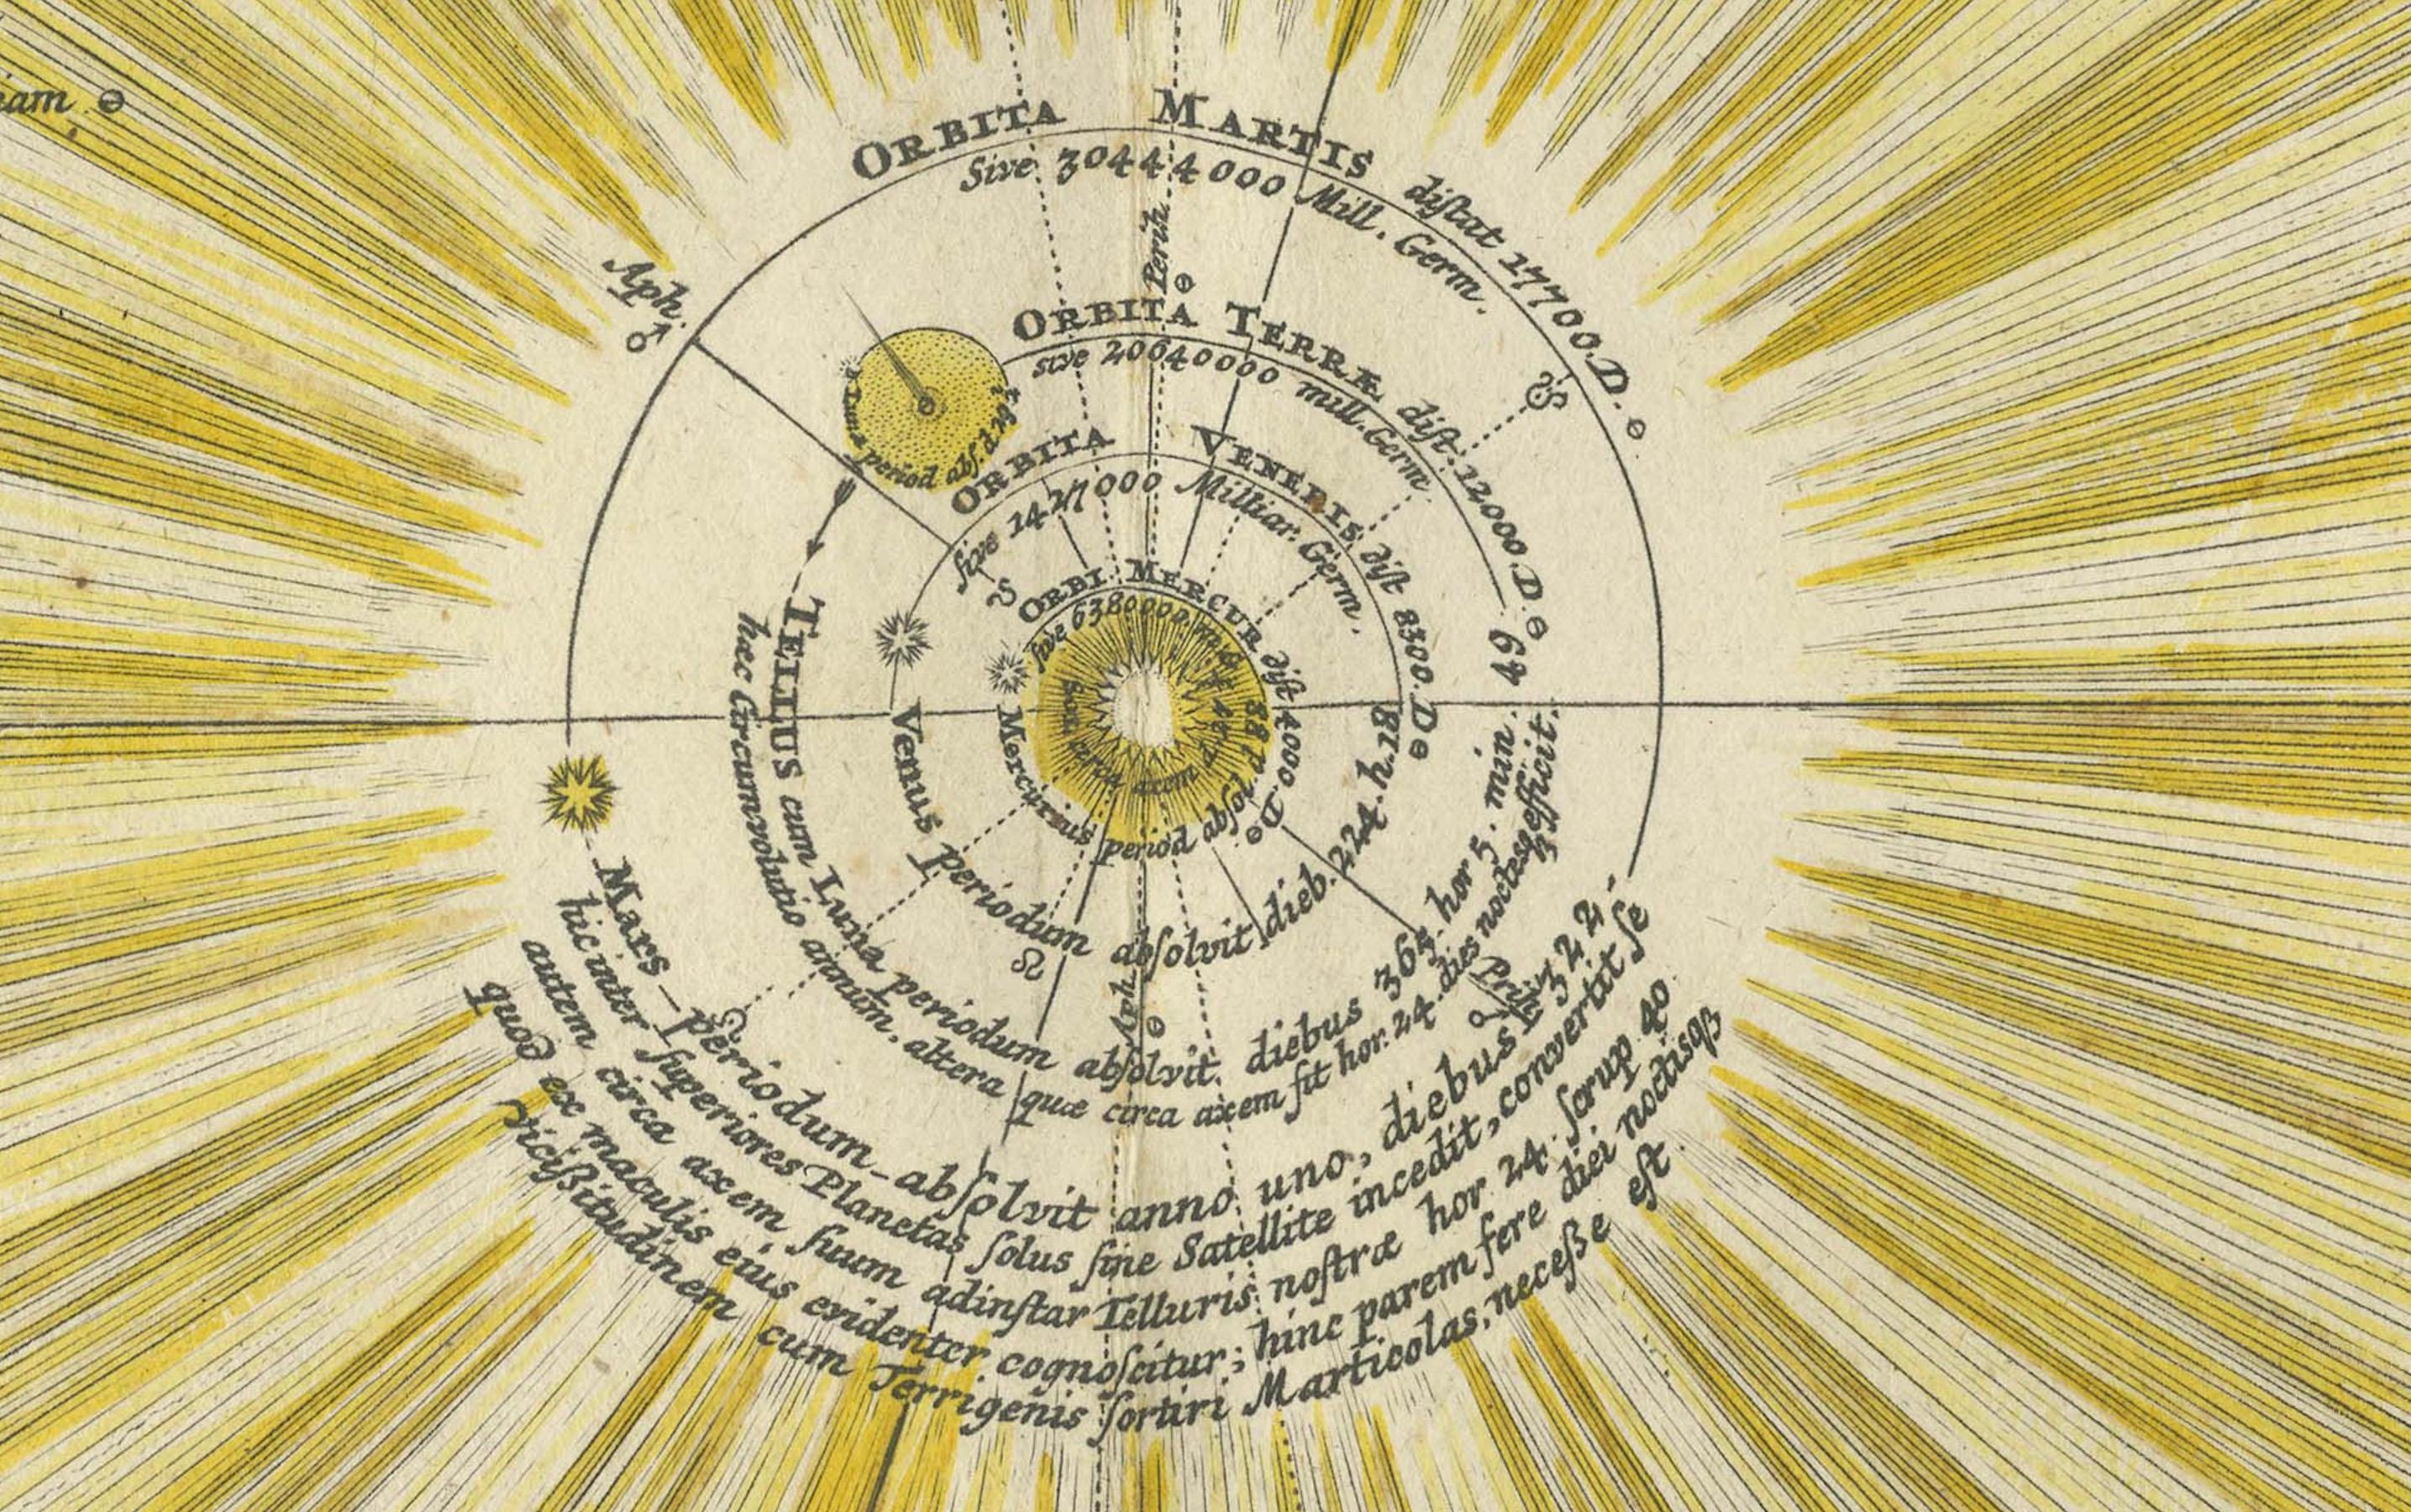 ORBITA MARTIS distat 17700.D.⊖
Sive 30444000 Mill. Germ.
Aph. ♂
Perih. ⊖
ORBITA TERRÆ dist. 12000 D ⊖
sive 20640000 mill. Germ.
Lunæ period abs.
ORBITA VENERIS dist 8300.D ⊖
sive 1427000 Milliar. Germ.
ORBI. MERCUR dist 4000.D ⊖
sive 6380000
Sol circa axem
Mercurius period absol. d 88
Venus periodum absolvit dieb. 224. h. 18
TELLUS cum Luna periodum absolvit. diebus 365. hor 5. min. 49
hæc Circumvolutio annum. altera quæ circa axem fit hor. 24. dies noctesqß efficit.
Aph. ⊖
Prih. ♂
Mars — periodum — absolvit anno uno, diebus 322
hic inter superiores Planetas solus sine Satellite incedit, convertit se
autem circa axem suum adinstar Telluris nostræ hor. 24. scrup. 40
quod ex maculis eius evidenter cognoscitur; hinc parem fere diei noctisqß
vicißitudinem cum Terrigenis sortiri Marticolas, neceße est